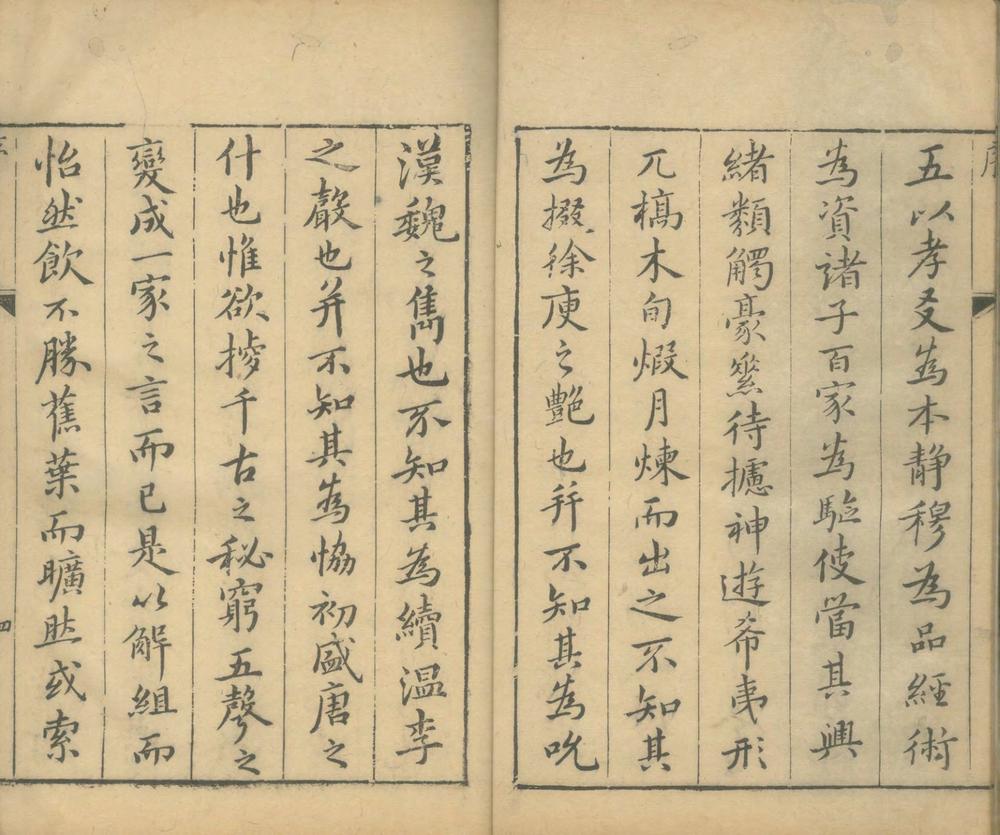 序
五以孝友為本靜穆為品經術
為資諸子百家為驅使當其興
緒類觸豪縈待攄神遊希夷形
兀槁木旬煆月煉而出之不知其
為掇徐庾之艷也并不知其為吮
漢魏之雋也不知其為續溫李
之聲也并不知其為協初盛唐之
什也惟欲千古之秘窮五聲之
變成一家之言而已是以解組而
怡然飲不勝蕉葉而曠然或索
四